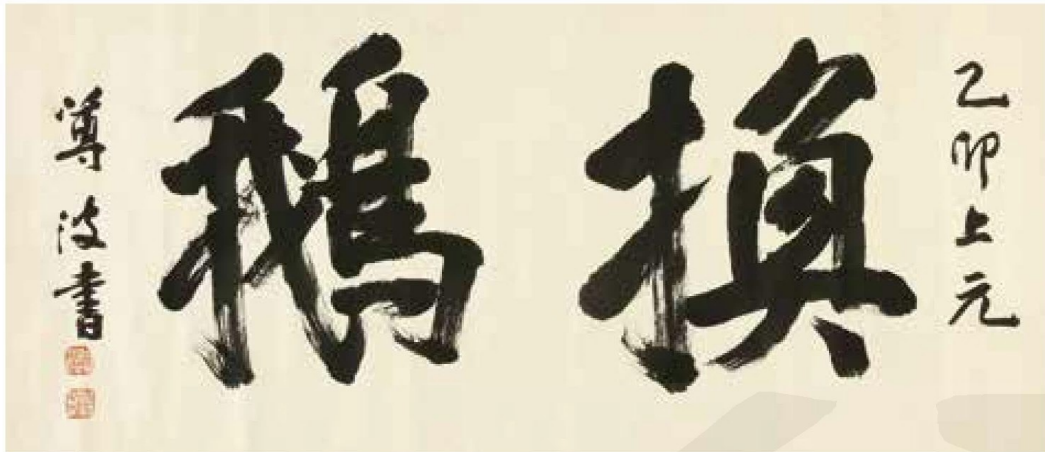 乙卯上元
換鵝
尊波書